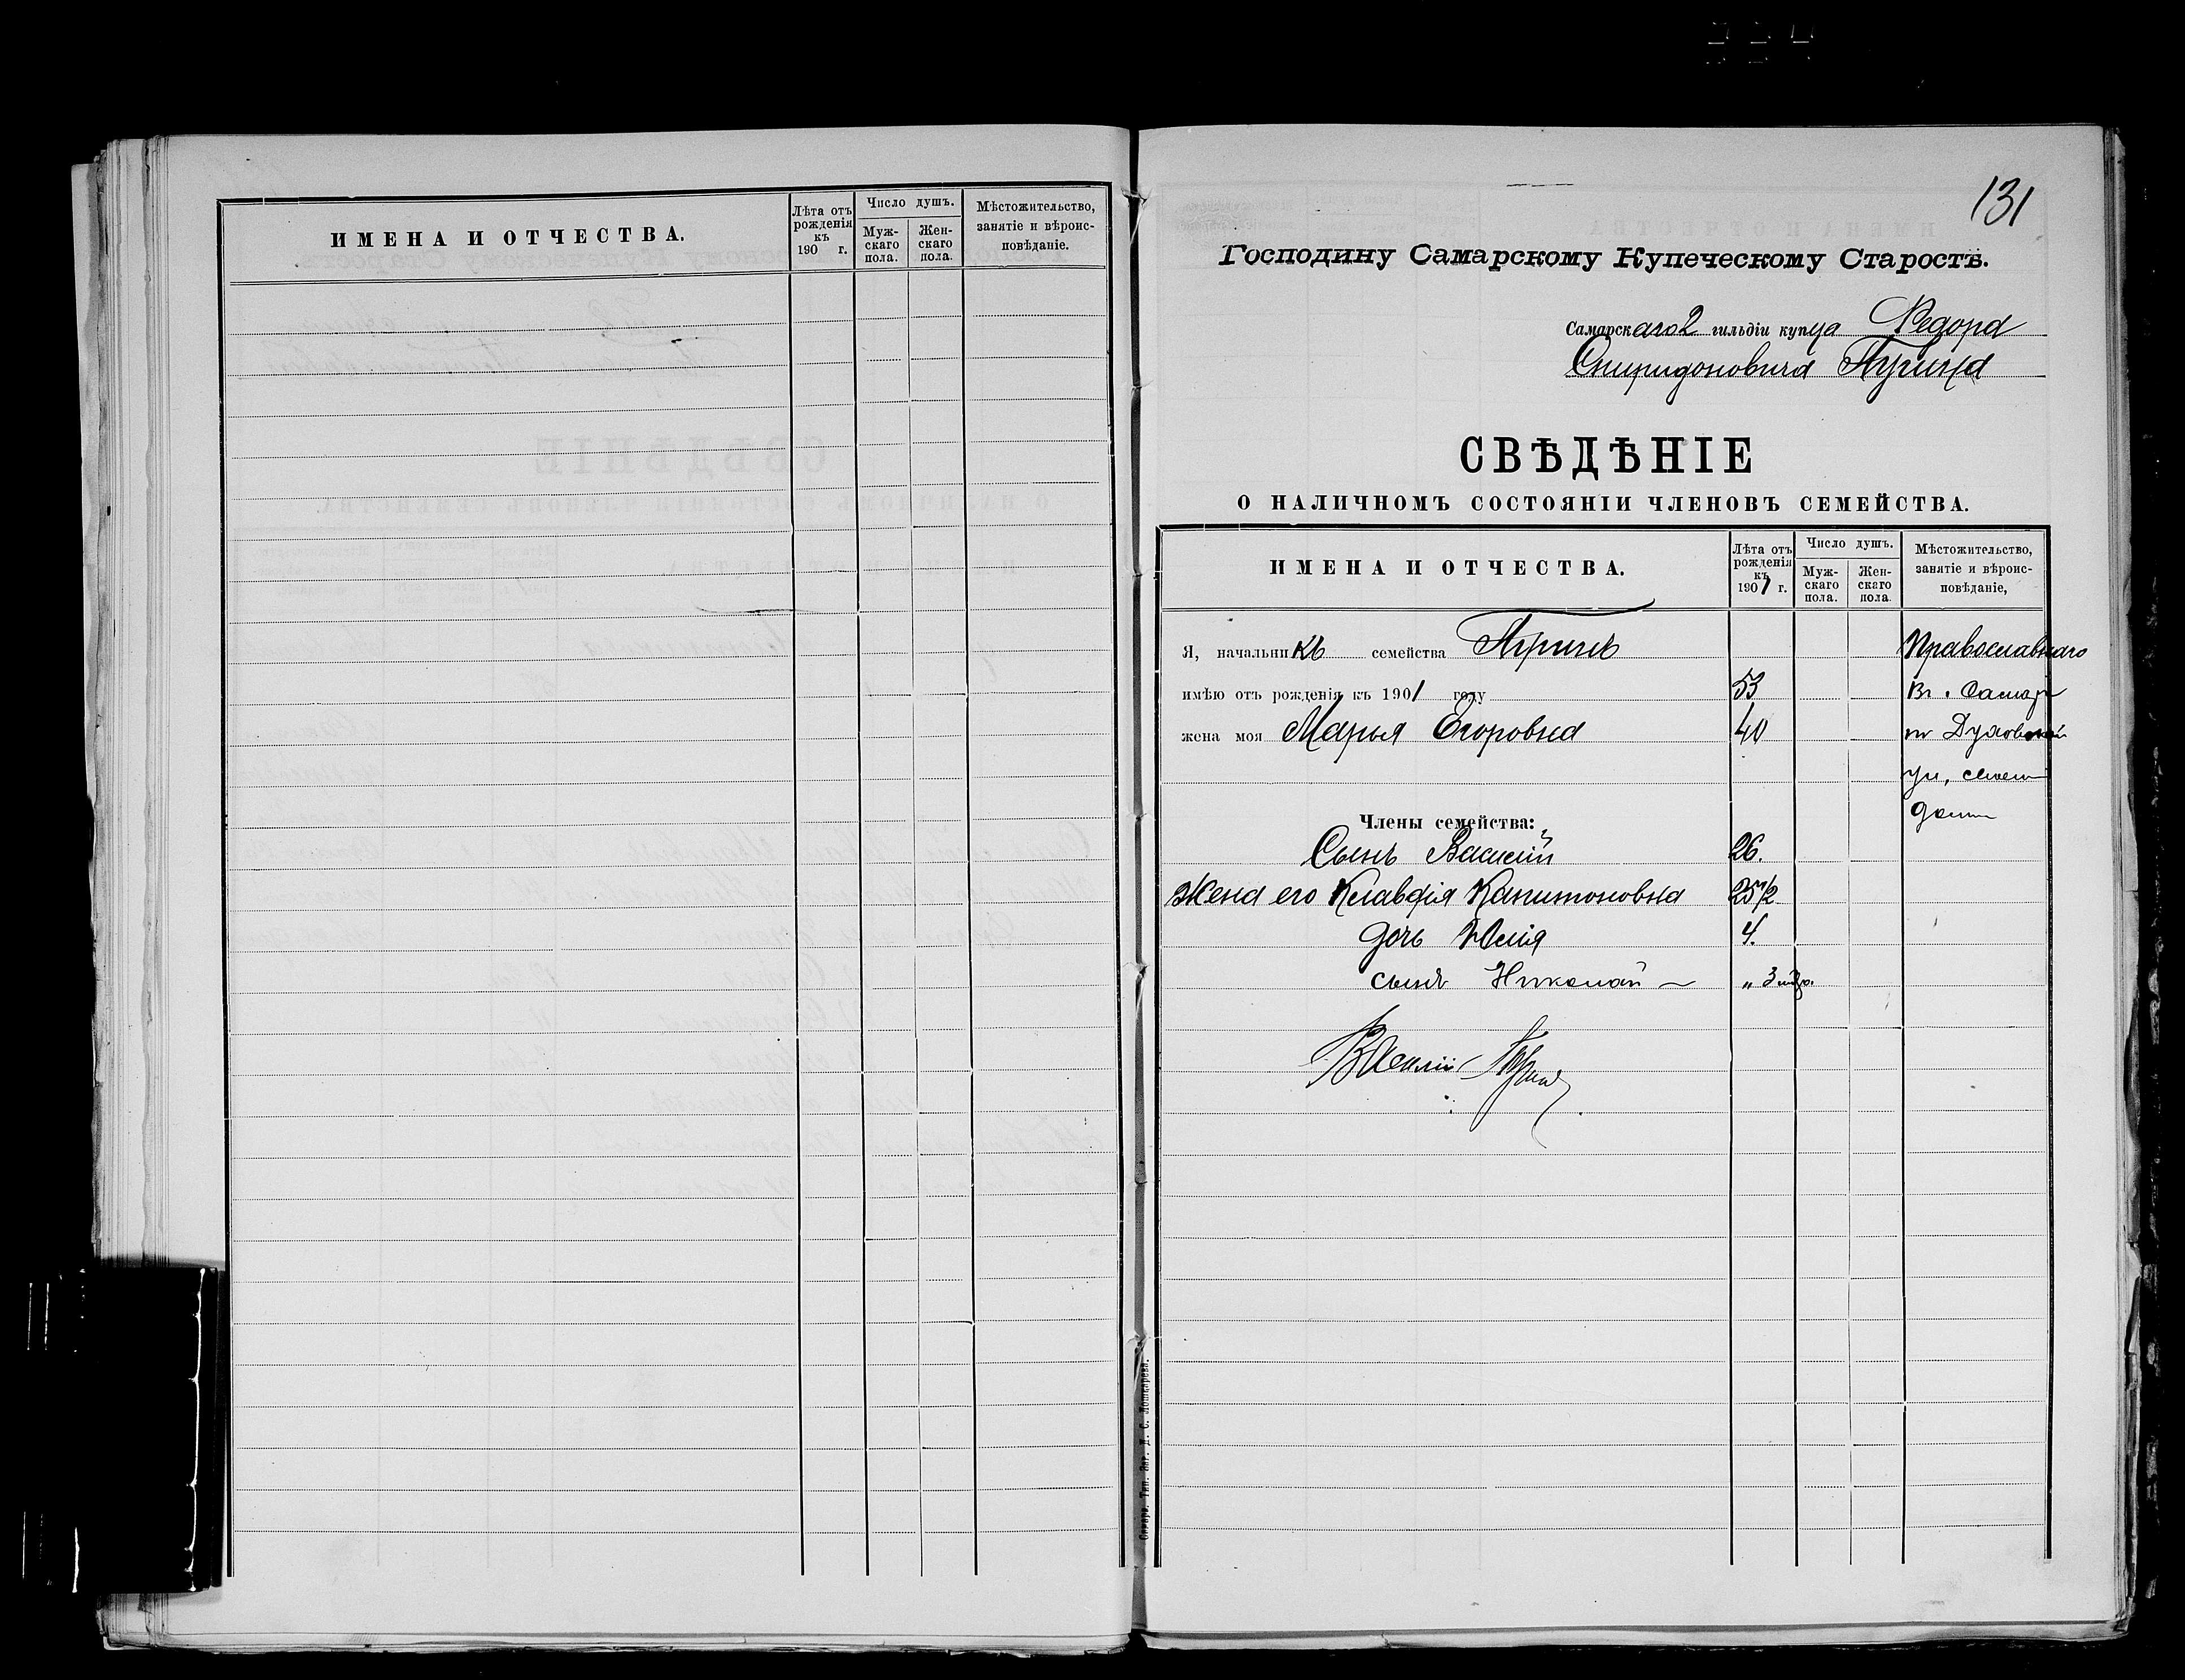 ИМЕНА И ОТЧЕСТВА.
Лѣта отъ рожденія къ 190 г.
Число душъ.
Муж-скаго пола.
Жен-скаго пола.
Мѣстожительство, занятіе и вѣроис-повѣданіе.
131
Господину Самарскому Купеческому Старостѣ.
Самарскаго 2 гильдіи купца Федора
Спиридоновича Пурина
СВѢДѢНІЕ
О НАЛИЧНОМЪ СОСТОЯНІИ ЧЛЕНОВЪ СЕМЕЙСТВА.
ИМЕНА И ОТЧЕСТВА.
Лѣта отъ рожденія къ 1901 г.
Число душъ.
Муж-скаго пола.
Жен-скаго пола.
Мѣстожительство, занятіе и вѣроис-повѣданіе,
Я, начальникъ семейства Пуринъ Православнаго
имѣю отъ рожденія къ 1901 году 53 Въ г. Самарѣ
жена моя Марья Егоровна 40 по Духовской
ул, своем
доме
Члены семейства:
Сынъ Василій 26.
Жена его Клавдія Капитоновна 25 1/2
дочь Юлія 4.
сынъ Николай „ 3
Василій Пуринъ
Самара. Тип. Нар. Д. С. Мошкарева.